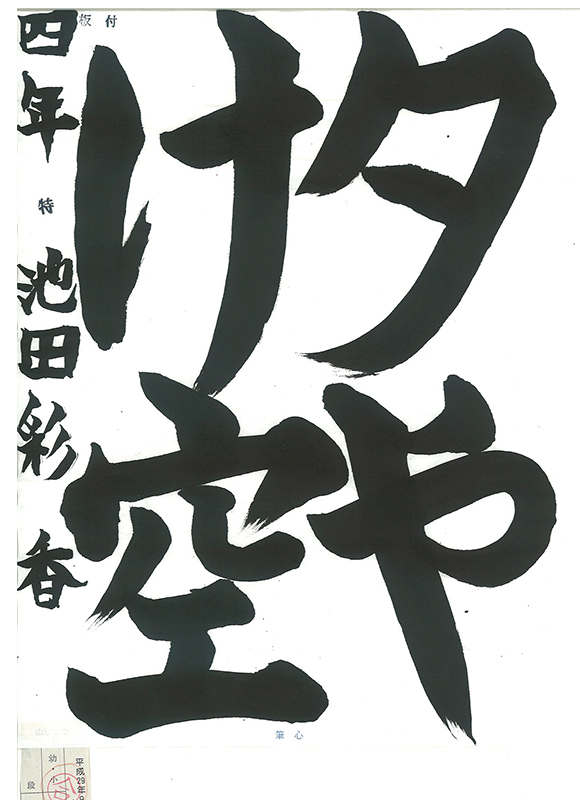 夕や
け空
四年 特 池田彩香
付 板
筆 心
幼・小
段
平成29年9